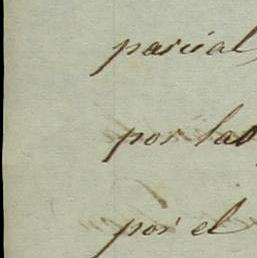 parcial
por las
por el